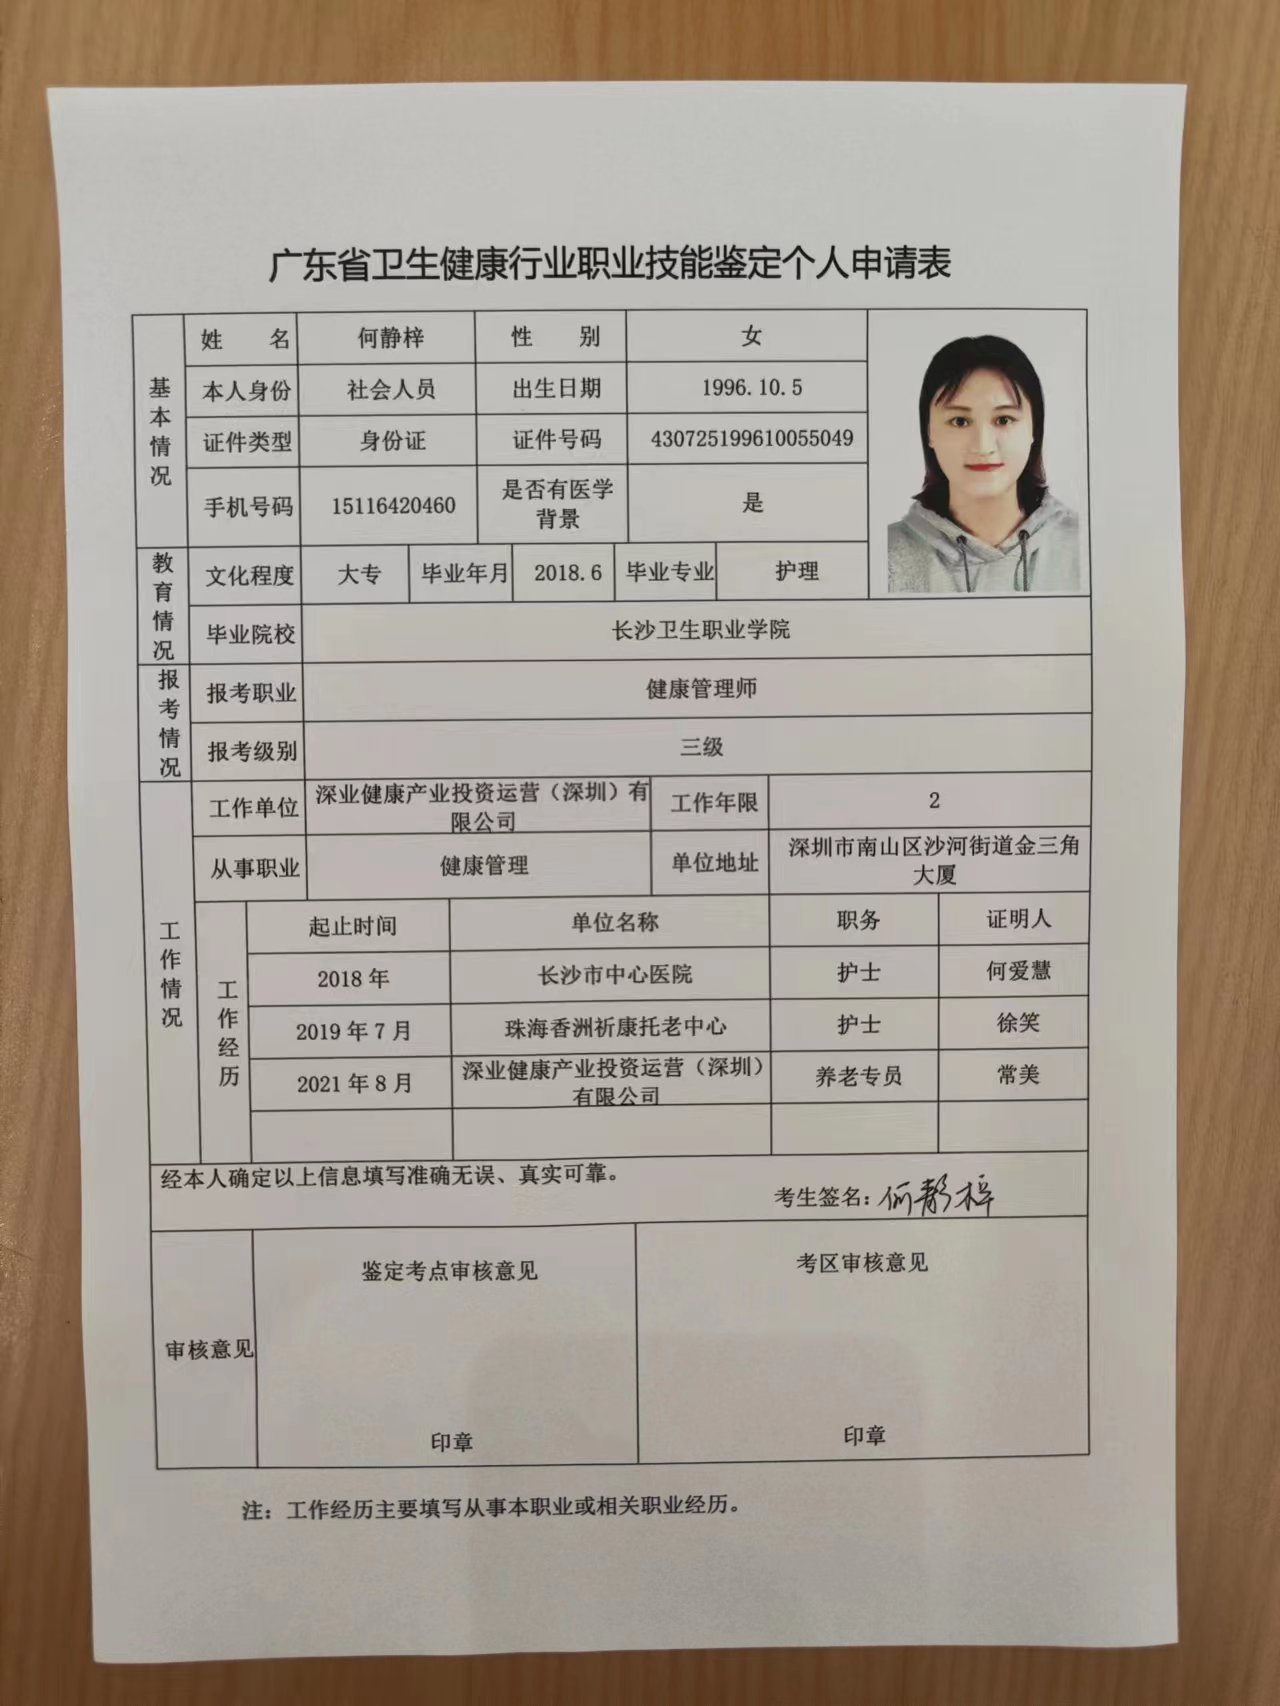 广东省卫生健康行业职业技能鉴定个人申请表
基本情况
姓 名 何静梓 性 别 女
本人身份 社会人员 出生日期 1996.10.5
证件类型 身份证 证件号码 430725199610055049
手机号码 15116420460 是否有医学背景 是
教育情况
文化程度 大专 毕业年月 2018.6 毕业专业 护理
毕业院校 长沙卫生职业学院
报考情况
报考职业 健康管理师
报考级别 三级
工作情况
工作单位 深业健康产业投资运营（深圳）有限公司 工作年限 2
从事职业 健康管理 单位地址 深圳市南山区沙河街道金三角大厦
工作经历
起止时间 单位名称 职务 证明人
2018年 长沙市中心医院 护士 何爱慧
2019年7月 珠海香洲祈康托老中心 护士 徐笑
2021年8月 深业健康产业投资运营（深圳）有限公司 养老专员 常美
经本人确定以上信息填写准确无误、真实可靠。
考生签名：何静梓
审核意见
鉴定考点审核意见 考区审核意见
印章 印章
注：工作经历主要填写从事本职业或相关职业经历。